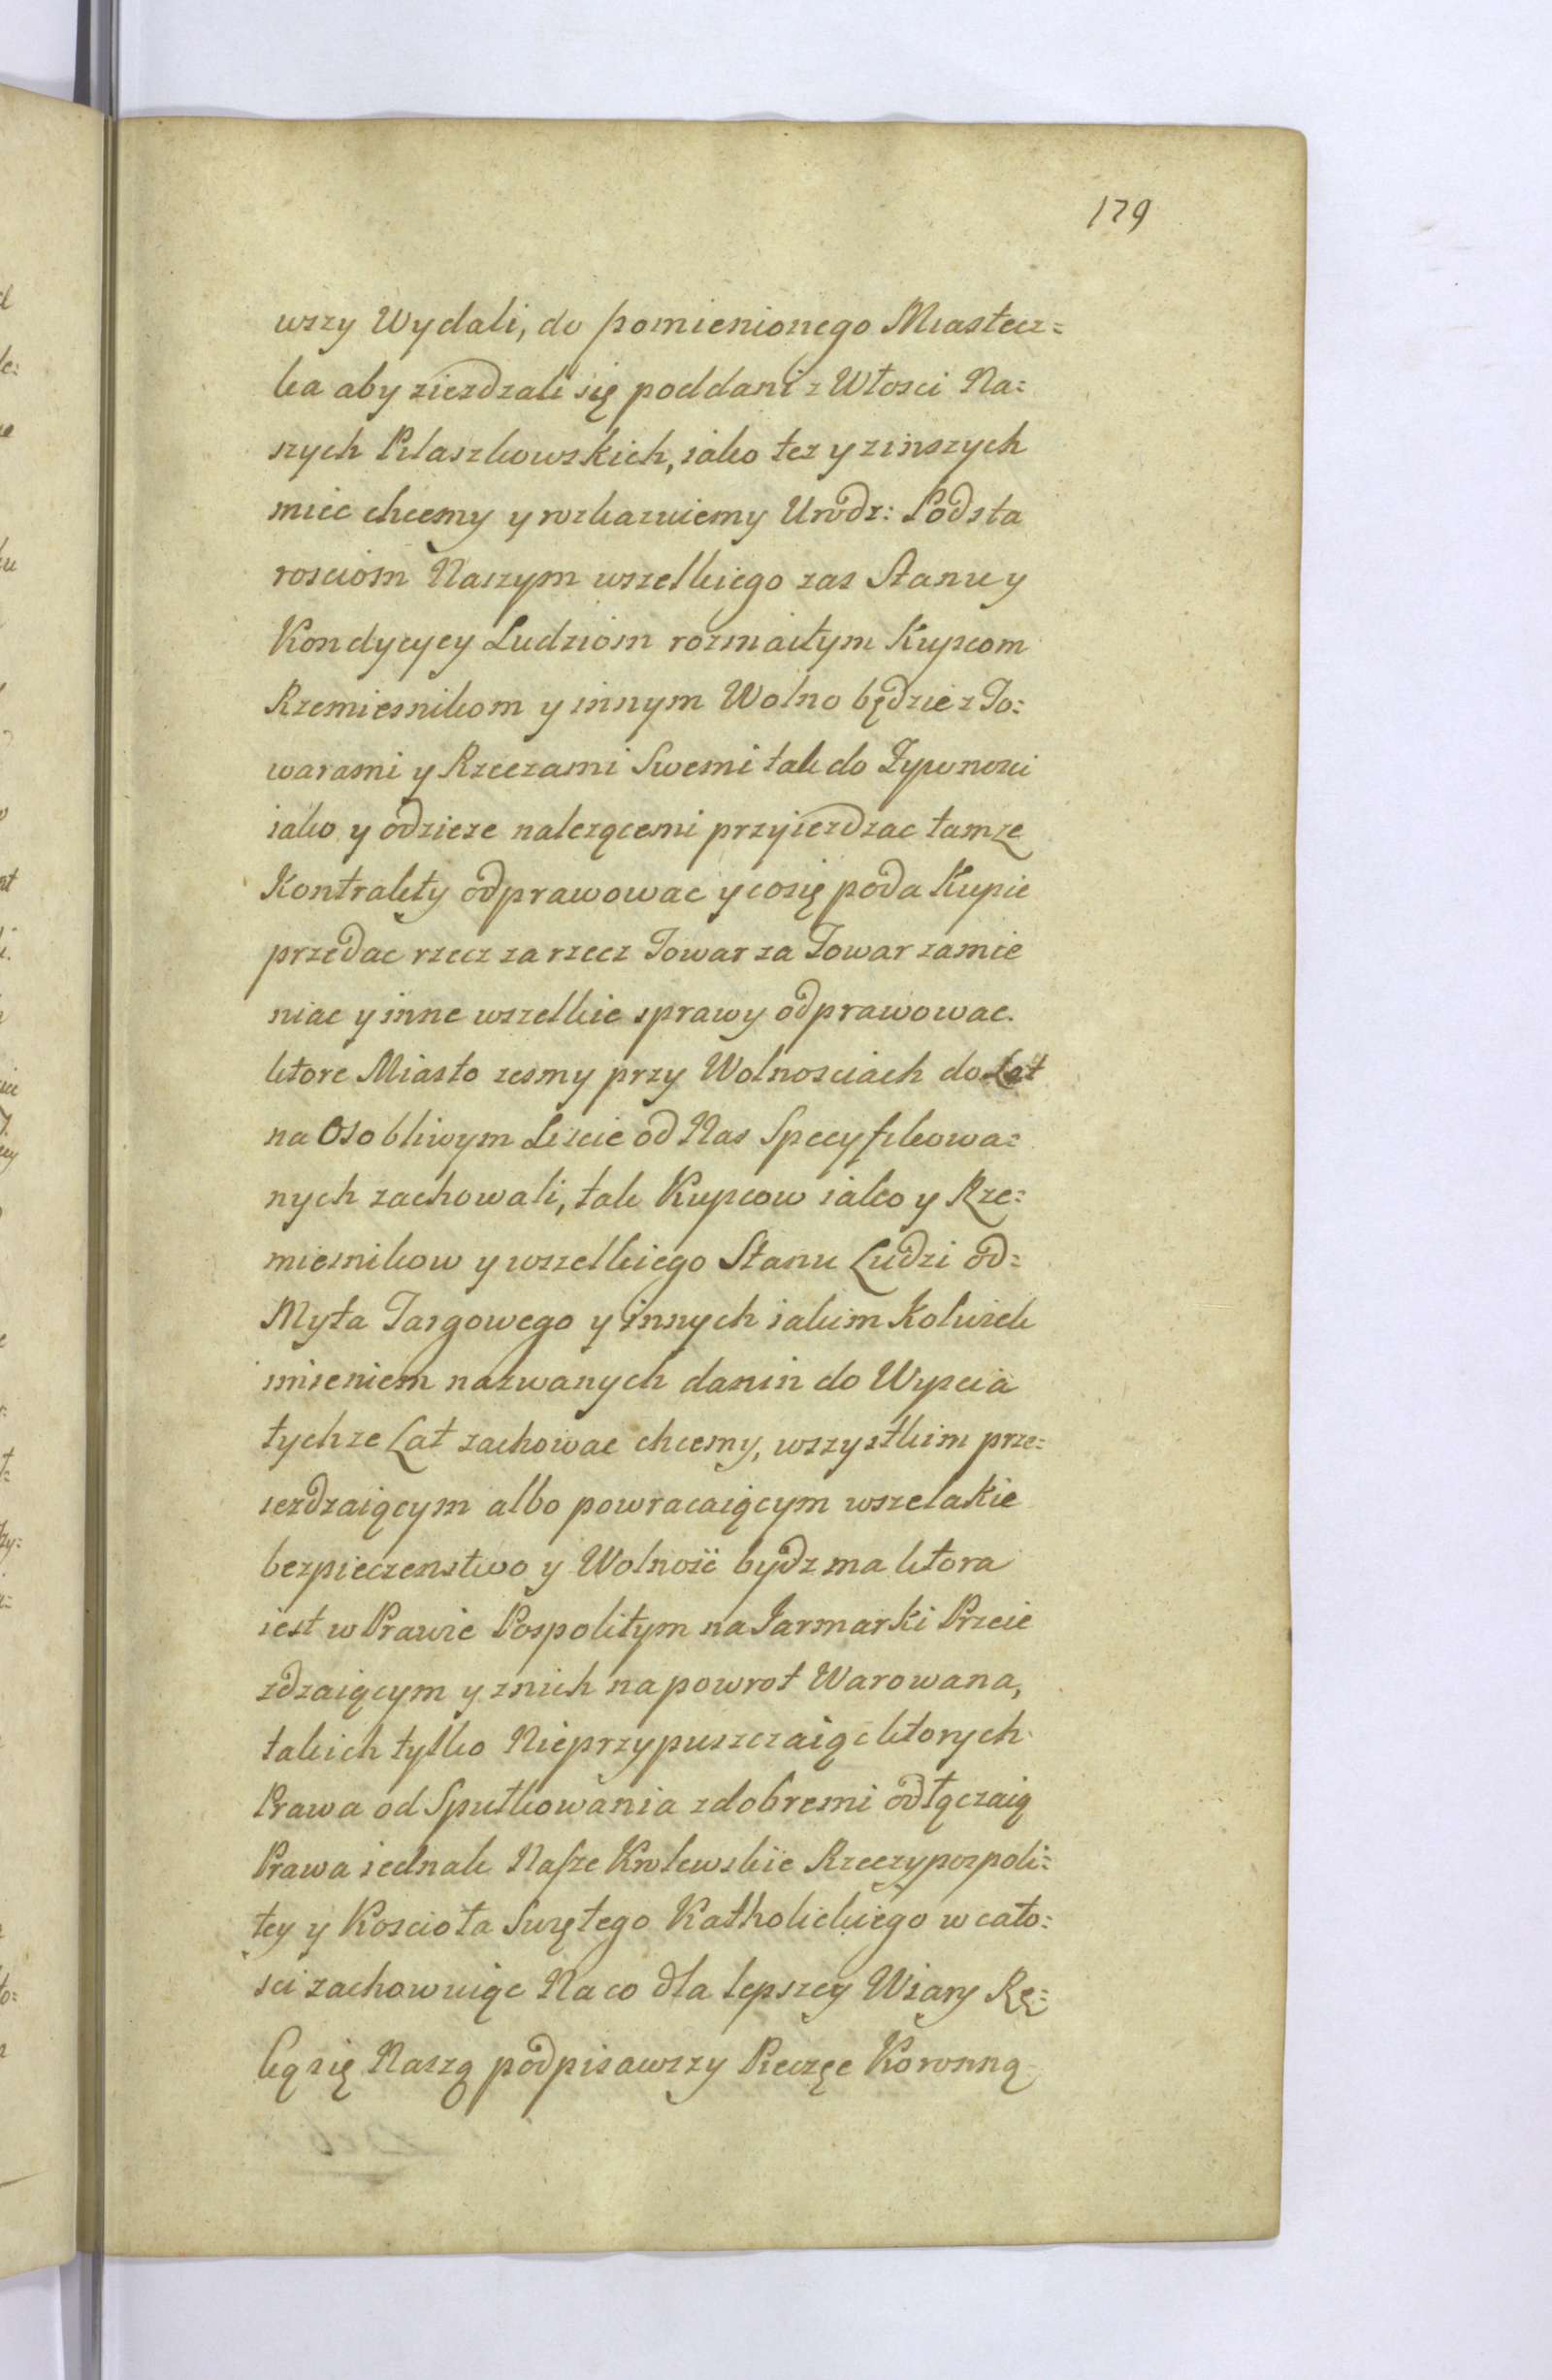 179
wszy Wydali, do pomienionego Miastecz=
ka aby ziezdzali się poddani z Włosci Na=
szych Płaszkowskich, iako tez y zinszych
miec chcemy y rozkazuiemy Urodz: Podsta
rosciom Naszym wszelkiego zas Stanu y
Kondycycy Ludziom rozmaitym Kupcom
Rzemiesnikom y innym Wolno będzie z To=
warami y Rzeczami Swemi tak do Zywnosci
iako y odzieze nalezącemi przyiezdzac tamze
Kontrakty odprawowac y cosię poda Kupie
przedac rzecz za rzecz Towar za Towar zamie
niac y inne wszelkie sprawy odprawowac.
ktore Miasto zesmy przy Wolnosciach do Lat
na Osobliwym Liscie od Nas Specyfikowa=
nych zachowali, tak Kupcow iako y Rze=
miesnikow y wszelkiego Stanu Ludzi od=
Myta Targowego y innych iakim Kolwiek
imieniem nazwanych danin do Wyscia
tychze Lat zachowac chcemy, wszystkim prze=
iezdzaiącym albo powracaiącym wszelakie
bezpieczenstwo y Wolnosc bydz ma ktora
iest w Prawie Pospolitym na Jarmarki Przeie
zdzaiącym y znich na powrot Warowana,
takich tylko Nieprzypuszczaiąc ktorych
Prawa od Sputkowania zdobremi odłączaią
Prawa iednak Nasze Krolewskie Rzeczypospoli=
tey y Koscioła Swętego Katholickiego w cało=
sci zachowuiąc Na co dla lepszey Wiary Rę=
ką się Naszą podpisawszy Pieczęc Koronną